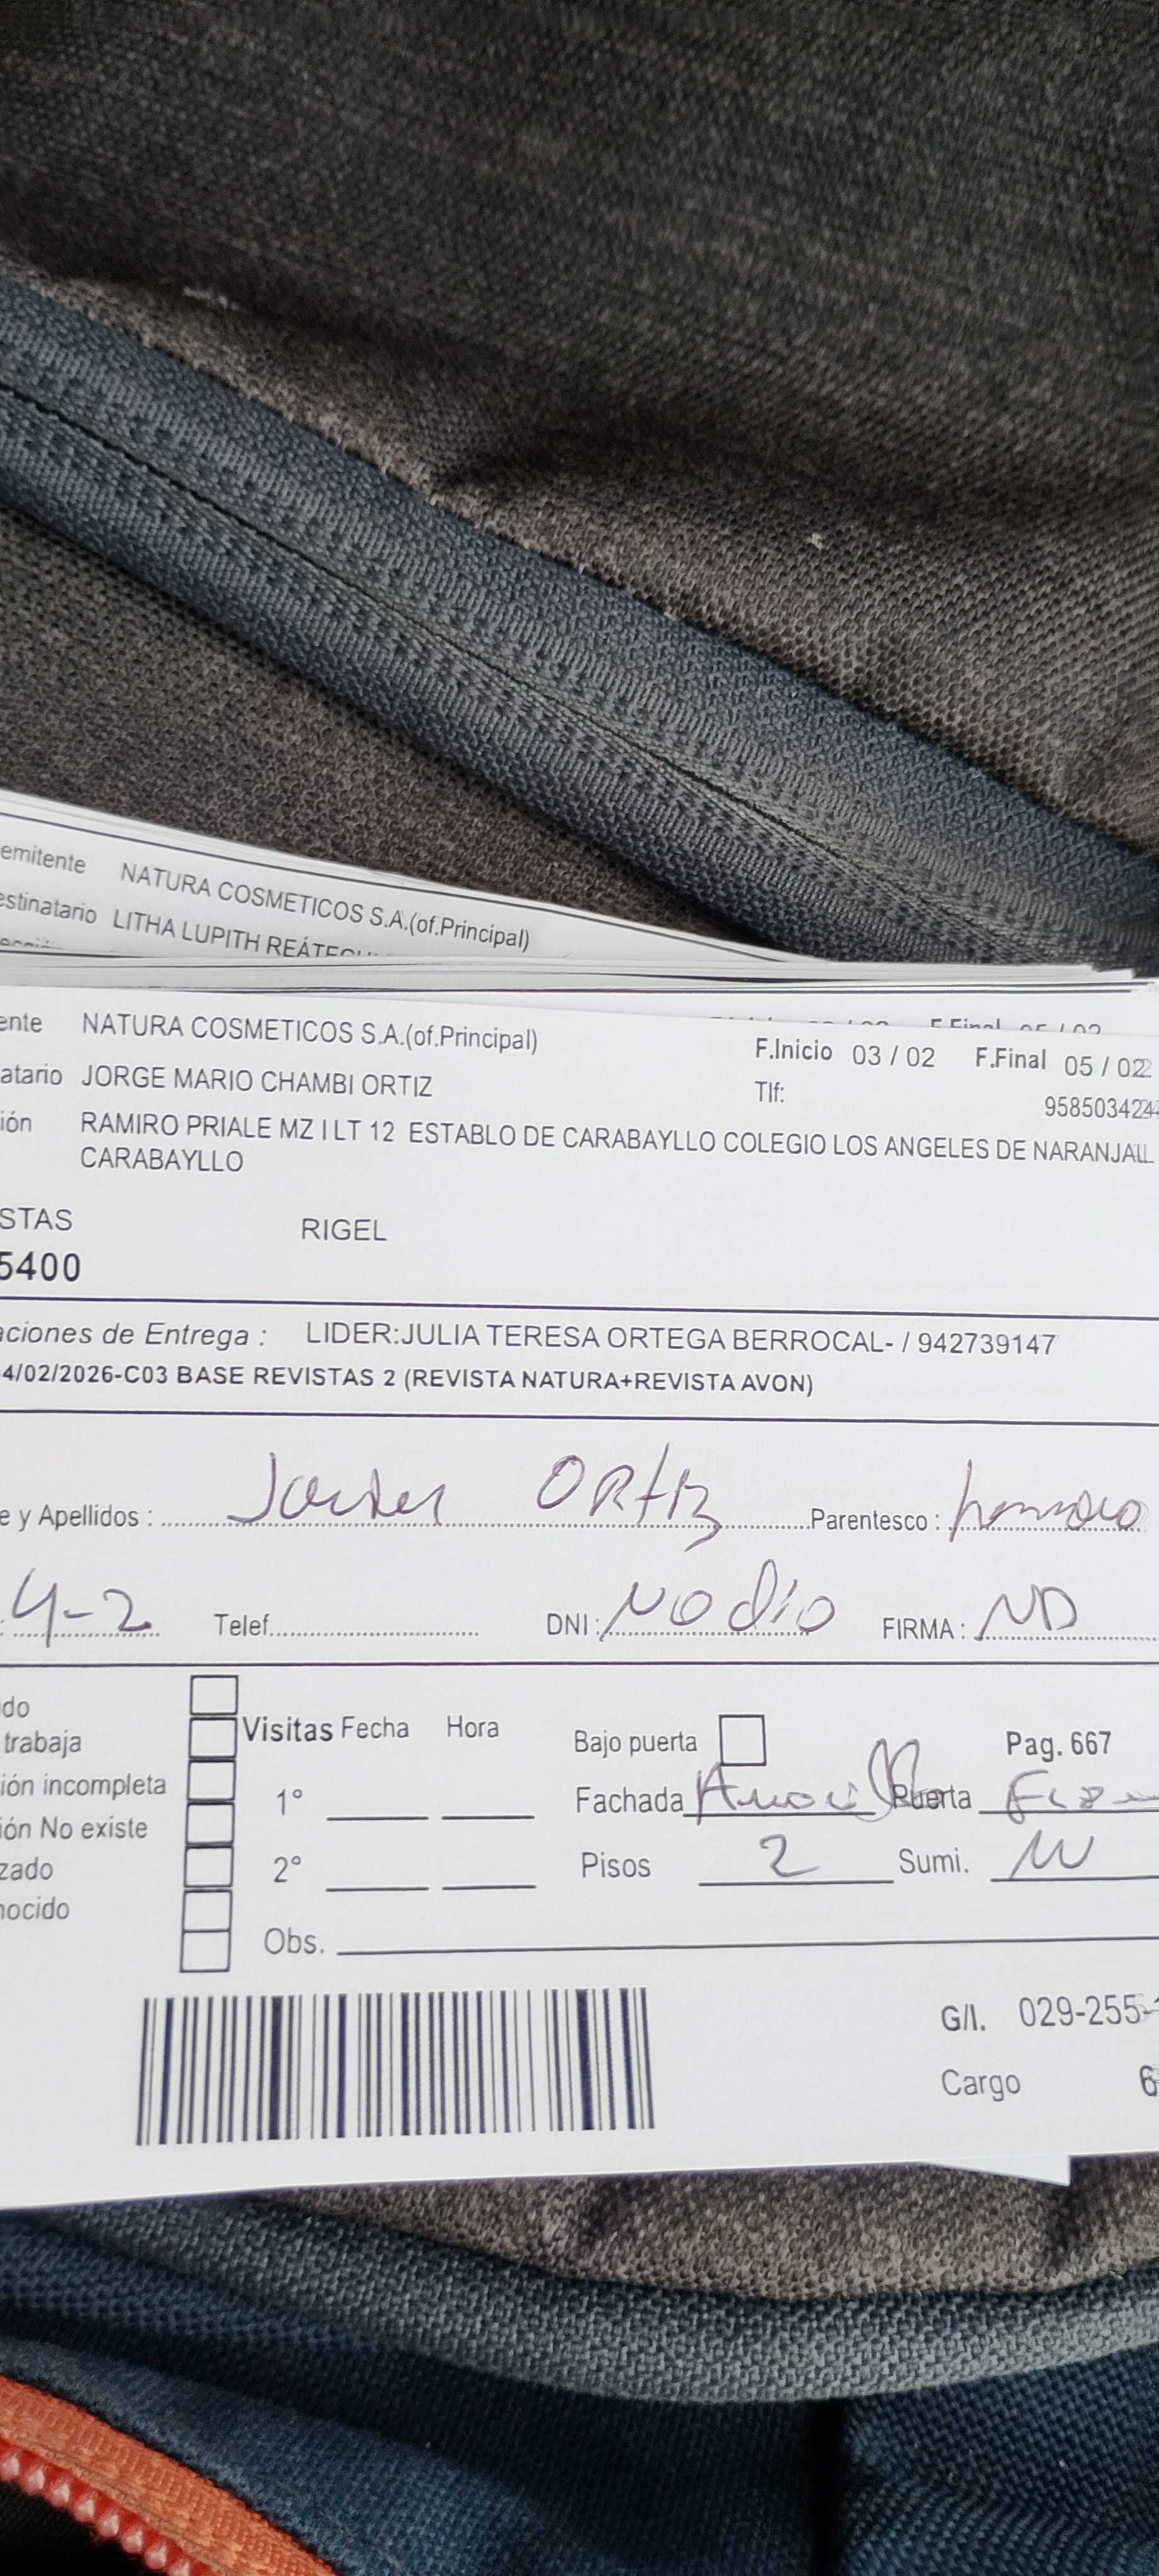 emitente NATURA COSMETICOS S.A.(of.Principal)
estinatario LITHA LUPITH
F.Final 05 / 02
ente NATURA COSMETICOS S.A.(of.Principal) F.Inicio 03 / 02 F.Final 05 / 02
atario JORGE MARIO CHAMBI ORTIZ Tlf: 958503424
ión RAMIRO PRIALE MZ I LT 12 ESTABLO DE CARABAYLLO COLEGIO LOS ANGELES DE NARANJAL
CARABAYLLO
STAS RIGEL
5400
aciones de Entrega : LIDER:JULIA TERESA ORTEGA BERROCAL- / 942739147
4/02/2026-C03 BASE REVISTAS 2 (REVISTA NATURA+REVISTA AVON)
e y Apellidos : Javier ORtiz Parentesco : hermano
4-2 Telef. DNI : NO dio FIRMA : ND
do
trabaja Visitas Fecha Hora Bajo puerta Pag. 667
ión incompleta 1° Fachada Amarilla Puerta
ión No existe
zado 2° Pisos 2 Sumi.
nocido
Obs.
G/I. 029-255-
Cargo 6